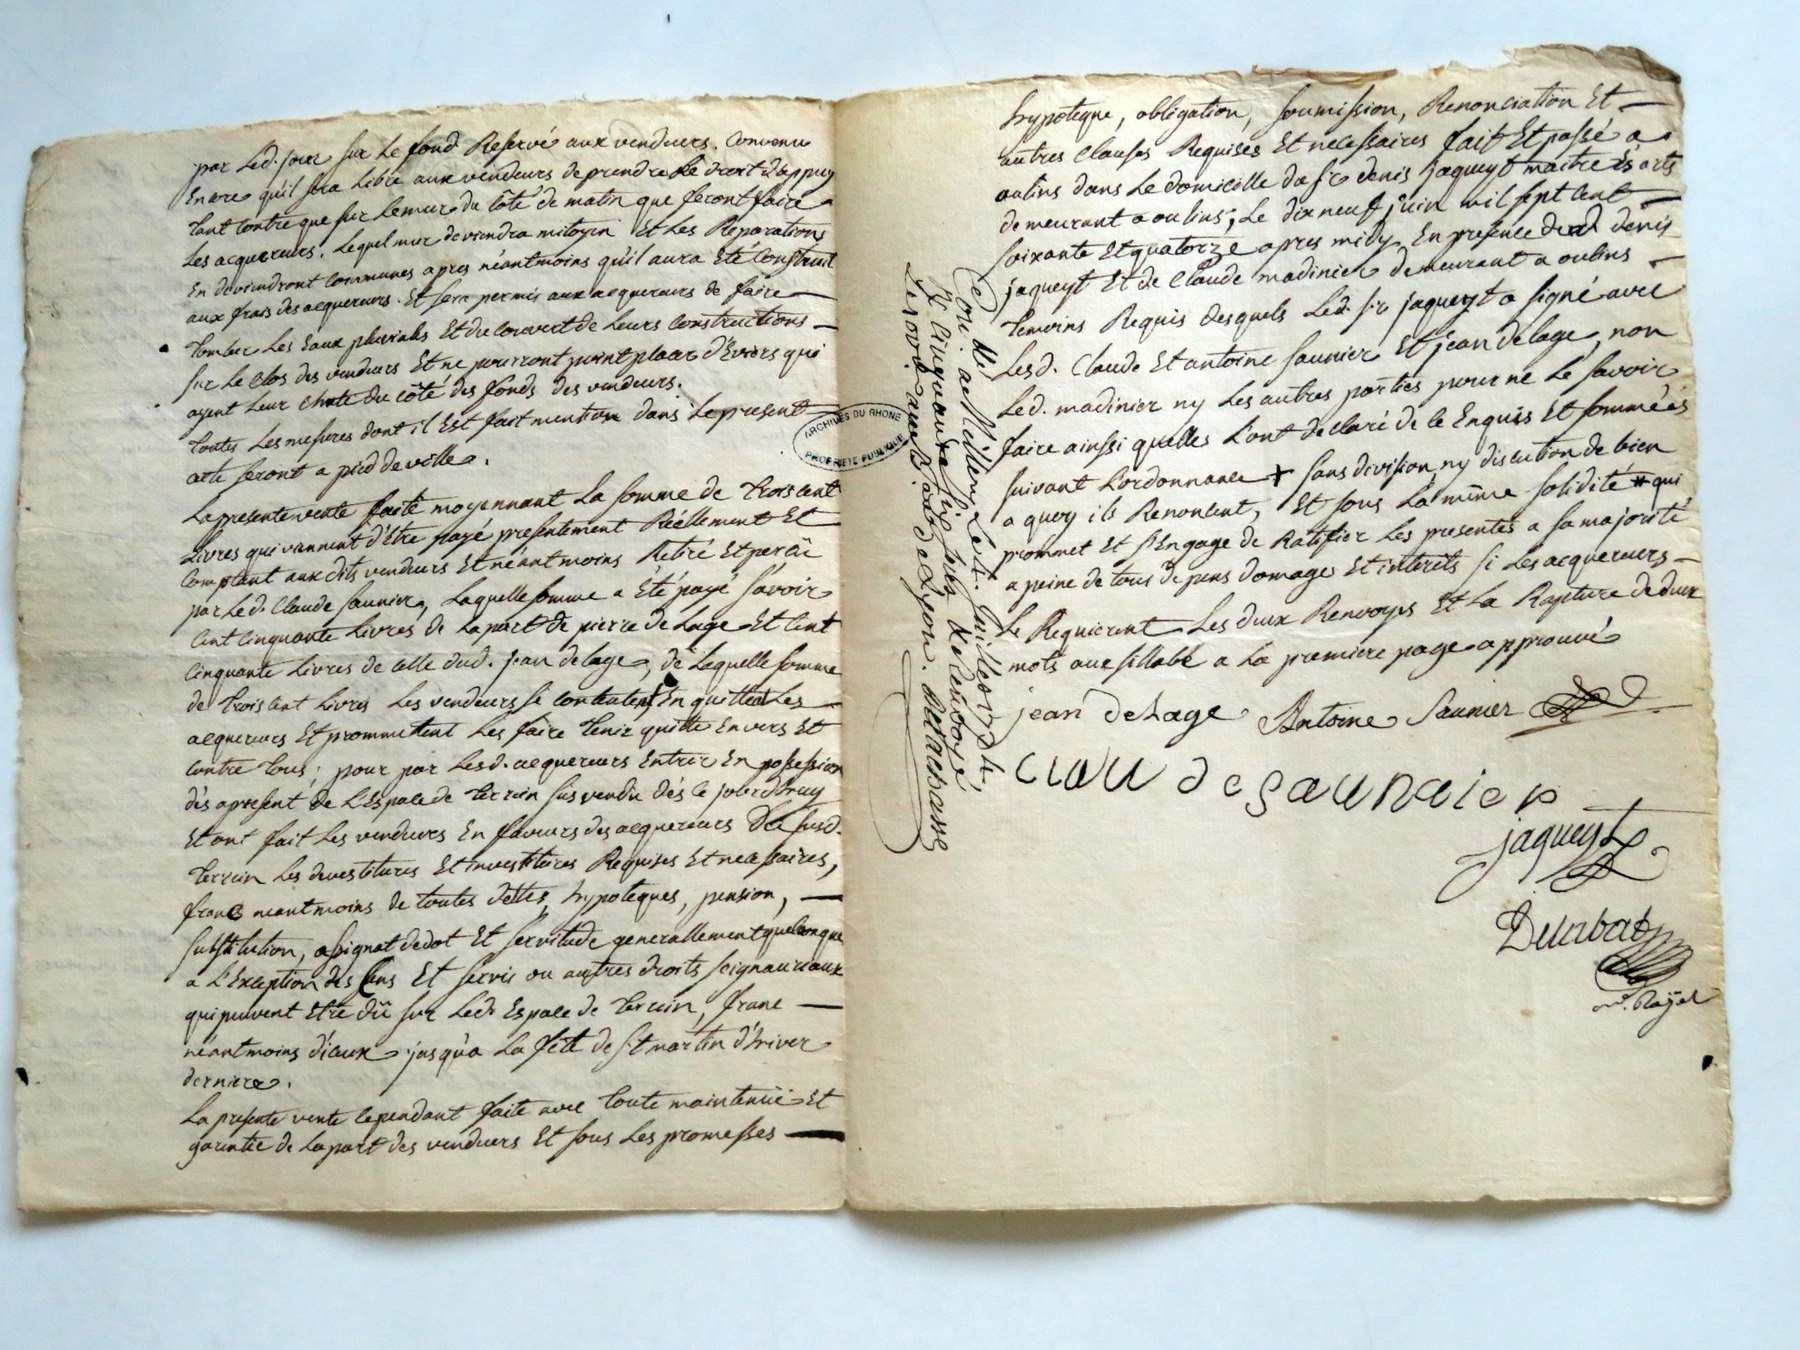 par Led. jour sur Le fond Reservé aux vendeurs. Convenu
Entre qu'il sera Libre aux vendeurs de prendre Le droit d'appuy
tant Contre que sur Le mur du Côté de matin que feront faire
Les acquereurs. Lequel mur deviendra mitoyin Et Les Reparations
En deviendront Communes apres néantmoins qu'il aura Eté Construit
aux frais des acquereurs. Et sera permis aux acquereurs de faire
tomber Les Eaux pluviales Et du Couvert de Leurs Constructions
sur Le Clos des vendeurs Et ne pourront point placer d'Eviers qui
ayent Leur Chute du Côté des fonds des vendeurs.
toutes Les mesures dont il Est fait mention dans Le present
acte seront a pied de ville.
La presente vente faite moyennant La somme de trois cent
Livres qui viennent d'Etre payé presentement Réellement Et
Comptant aux dits vendeurs Et néantmoins Retiré Et perçû
par Le d. Claude saunier, Laquelle somme a Eté payé savoir
Cent Cinquante Livres de La part de pierre de Lage Et Cent
Cinquante Livres de Celle dud. jean de lage, de Laquelle somme
de trois Cent Livres Les vendeurs se Contentent En quittent Les
acquereurs Et prommettent Les faire tenir quitte Envers Et
Contre tous; pour par Lesd. acquereurs Entrer En possession
dès apresent de L'Espace de terrein sus vendû dès ce jourd'huy
Et ont fait Les vendeurs En faveurs des acquereurs du susd.
terrein Les devestitures Et investitures Requises Et necessaires,
franc neantmoins de toutes dettes, hypoteques, pension,
substitution, assignat de dot Et servitude generallement quelconque
a L'Exception des Cens Et servis ou autres droits seignauriaux
qui peuvent Etre dû sur Led. Espace de terrein, franc
néantmoins d'iceux jusqu'a La fête de st martin d'hiver
derniere.
La presente vente Cependant faite avec toute maintenüe Et
garantie de La part des vendeurs Et sous Les promesses
ARCHIVES DU RHONE
PROPRIÉTÉ PUBLIQUE
hypoteque, obligation, soumission, Renonciation Et
autres Clauses Requises Et necessaires fait Et passé a
oulins dans Le domicille du sr denis jaqueyt maitre és arts
demeurant a oulins, Le dix neuf juin mil sept Cent
soixante Et quatorze apres midy En presence dud denis
jaqueyt Et de Claude madinier demeurant a oulins
temoins Requis desquels Led. sr jaqueyt a signé avec
Lesd. Claude Et antoine saunier Et jean delage, non
Led. madinier ny Les autres parties pour ne Le savoir
faire ainsi quelles L'ont declaré de Ce Enquis Et sommées
suivant L'ordonnance + sans division ny discution de bien
a quoy ils Renoncent, Et sous La même solidité # qui
prommet Et s'Engage de Ratifier Les presentes a sa majorité
a peine de tous depens domages Et interêts si Les acquereurs
Le Requierent Les deux Renvoyes Et La Rapture de deux
mots avec sillabe a La premiere page approuvé
jean deLage Antoine Saunier
Clau de saunaier
jaqueyt
Delabat
nre. Royal
Con. lé a Millery Le 4. Juillet 1774.